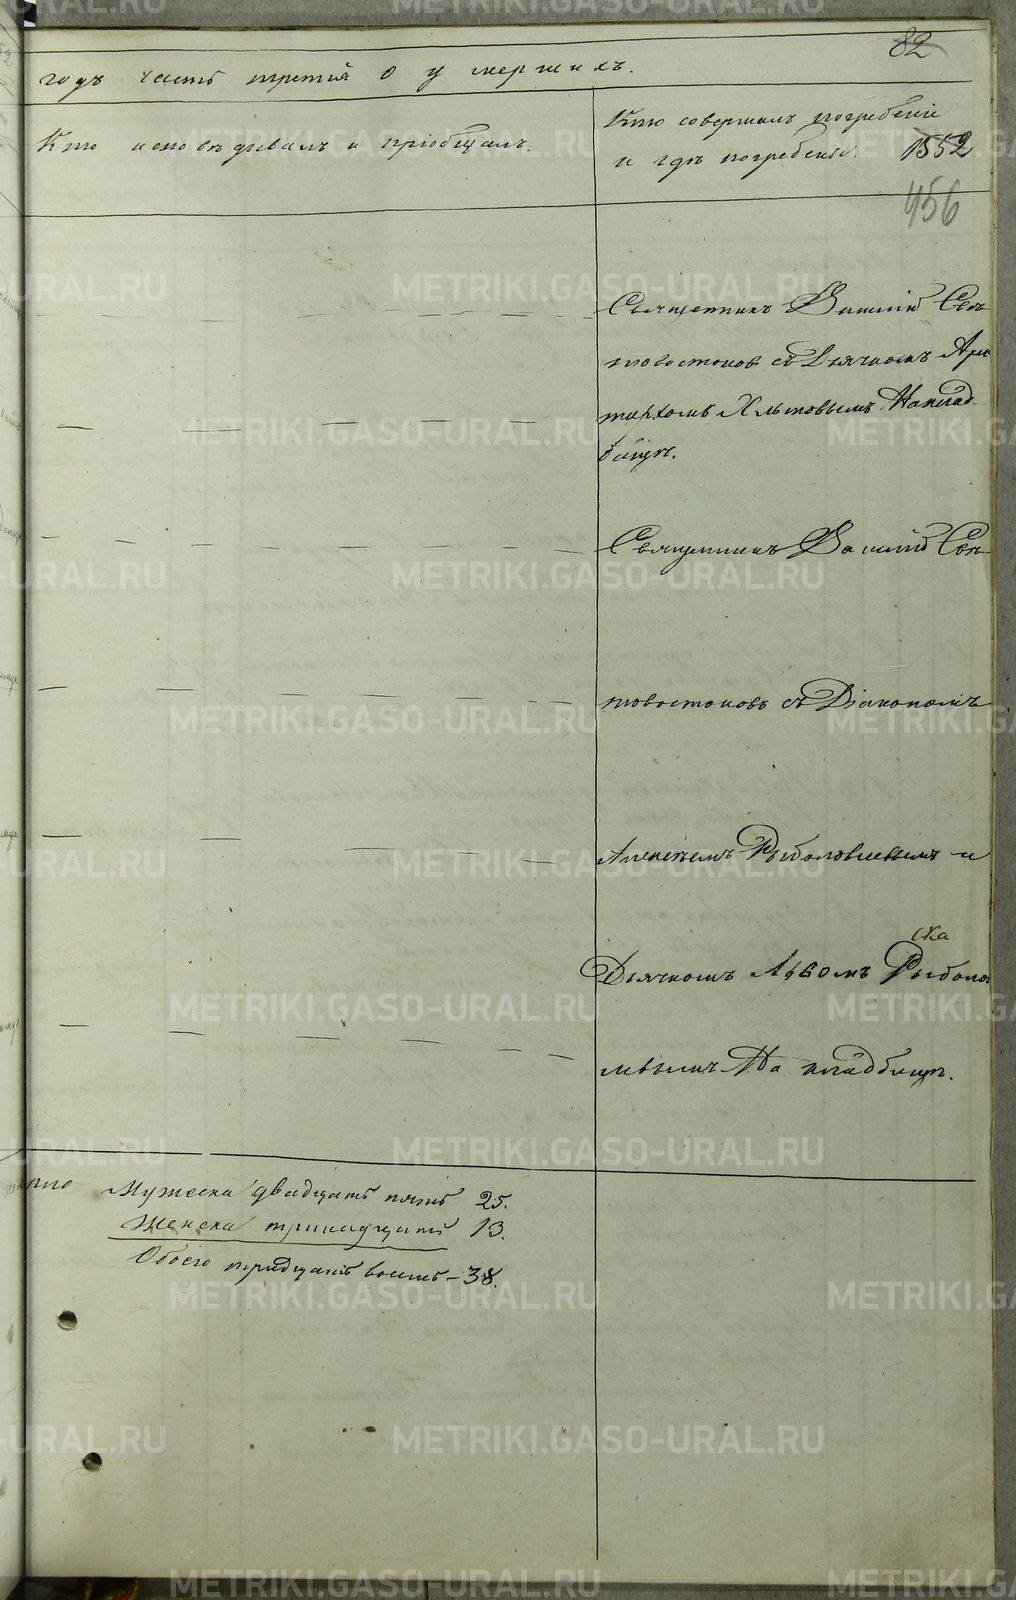 82
годъ часть третія о умершихъ.
Кто исповѣдывалъ и пріобщалъ.
Кто совершалъ погребеніе
и гдѣ погребены.
1552
456
Священникъ Василій Свѣ
товостоковъ съ Дьячкомъ Арис
тархомъ Хлыновымъ На клад
бищѣ.
Священникъ Василій Свѣ
товостоковъ съ Діакономъ
Алексѣемъ Рыболовлевымъ и
ска
Дьячкомъ Львомъ Рыболо
влевымъ На кладбищѣ.
Мужеска двадцать пять 25.
Женска тринадцать 13.
Обоего тридцать восемь - 38.
METRIKI.GASO-URAL.RU